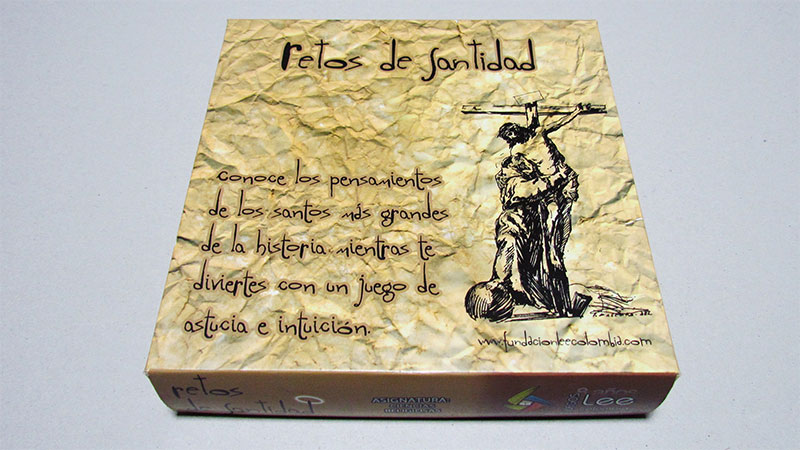 retos de santidad
conoce los pensamientos
de los santos más grandes
de la historia mientras te
diviertes con un juego de
astucia e intuición.
www.fundacionleecolombia.com
retos
de santidad
ASIGNATURA:
CIENCIAS
RELIGIOSAS
Lee